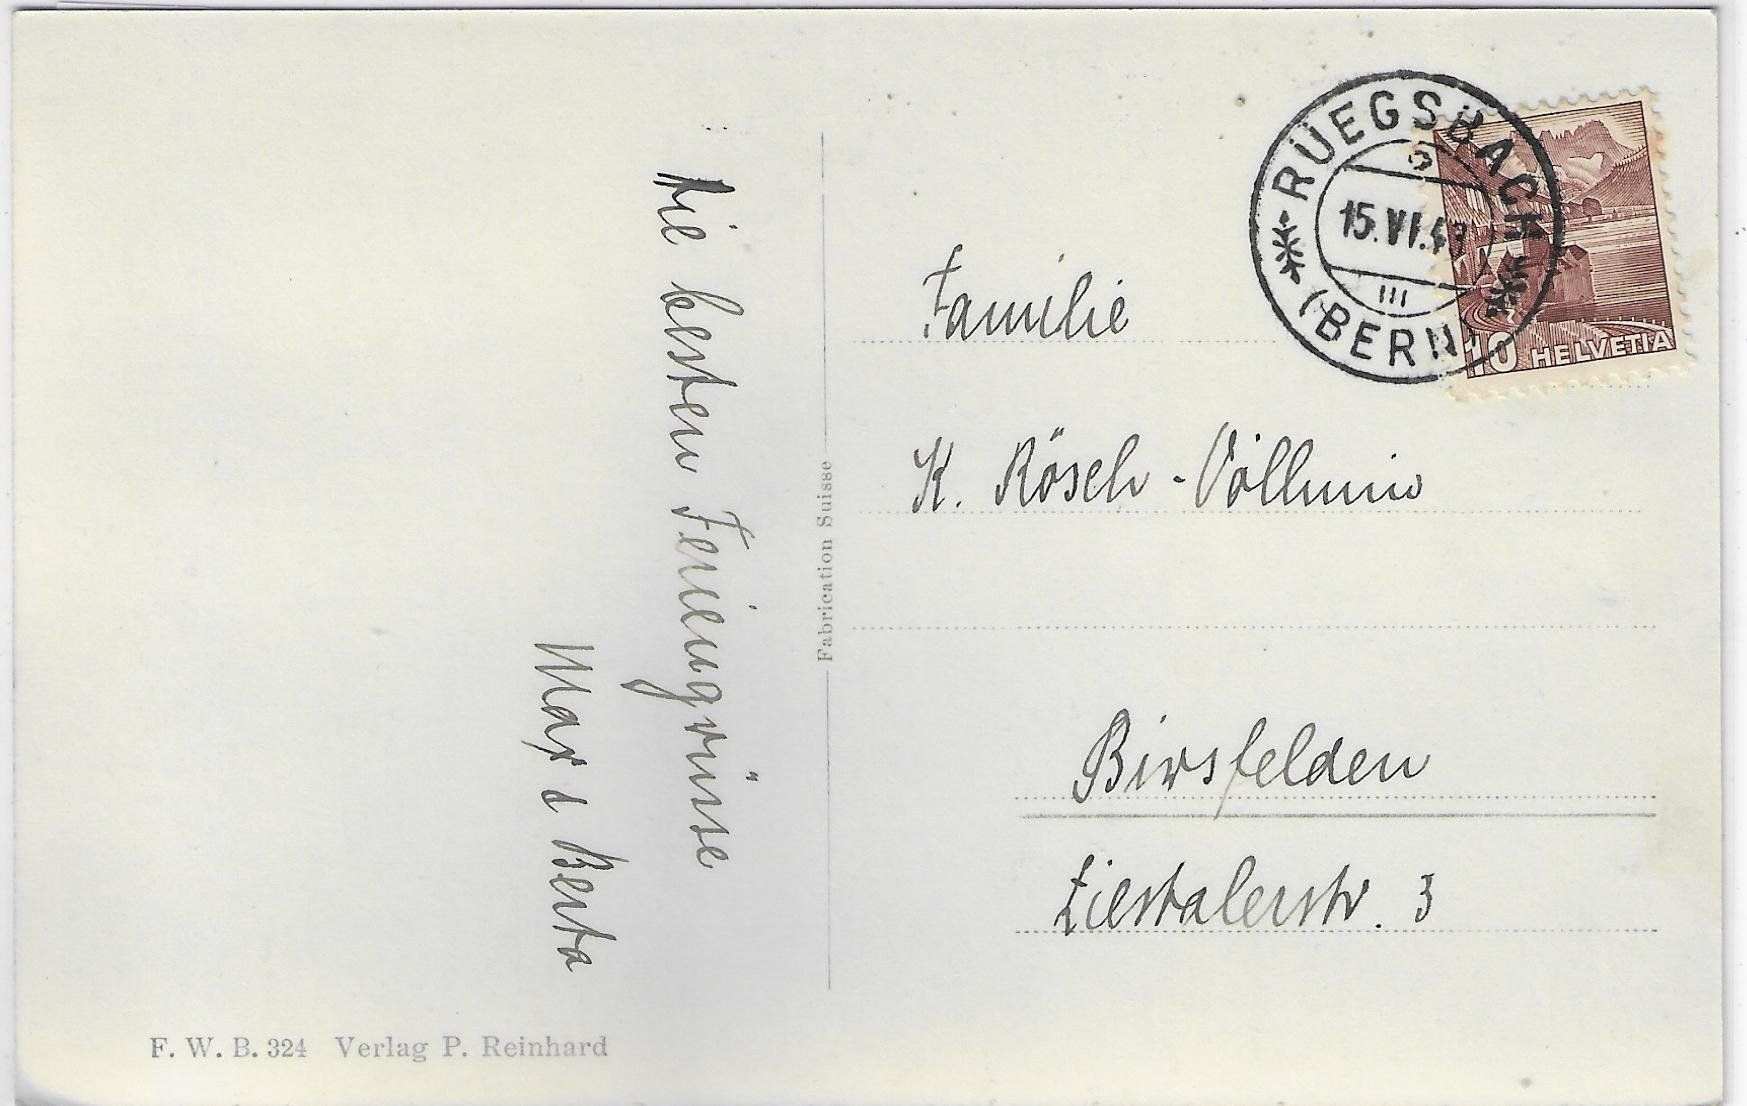 Die besten Feriengrüsse
Max & Berta
F. W. B. 324 Verlag P. Reinhard
Fabrication Suisse
RÜEGSBACH
15.VI.43
III
(BERN)
10 HELVETIA
Familie
K. Rösch - Völlmin
Birsfelden
Liestalerstr. 3